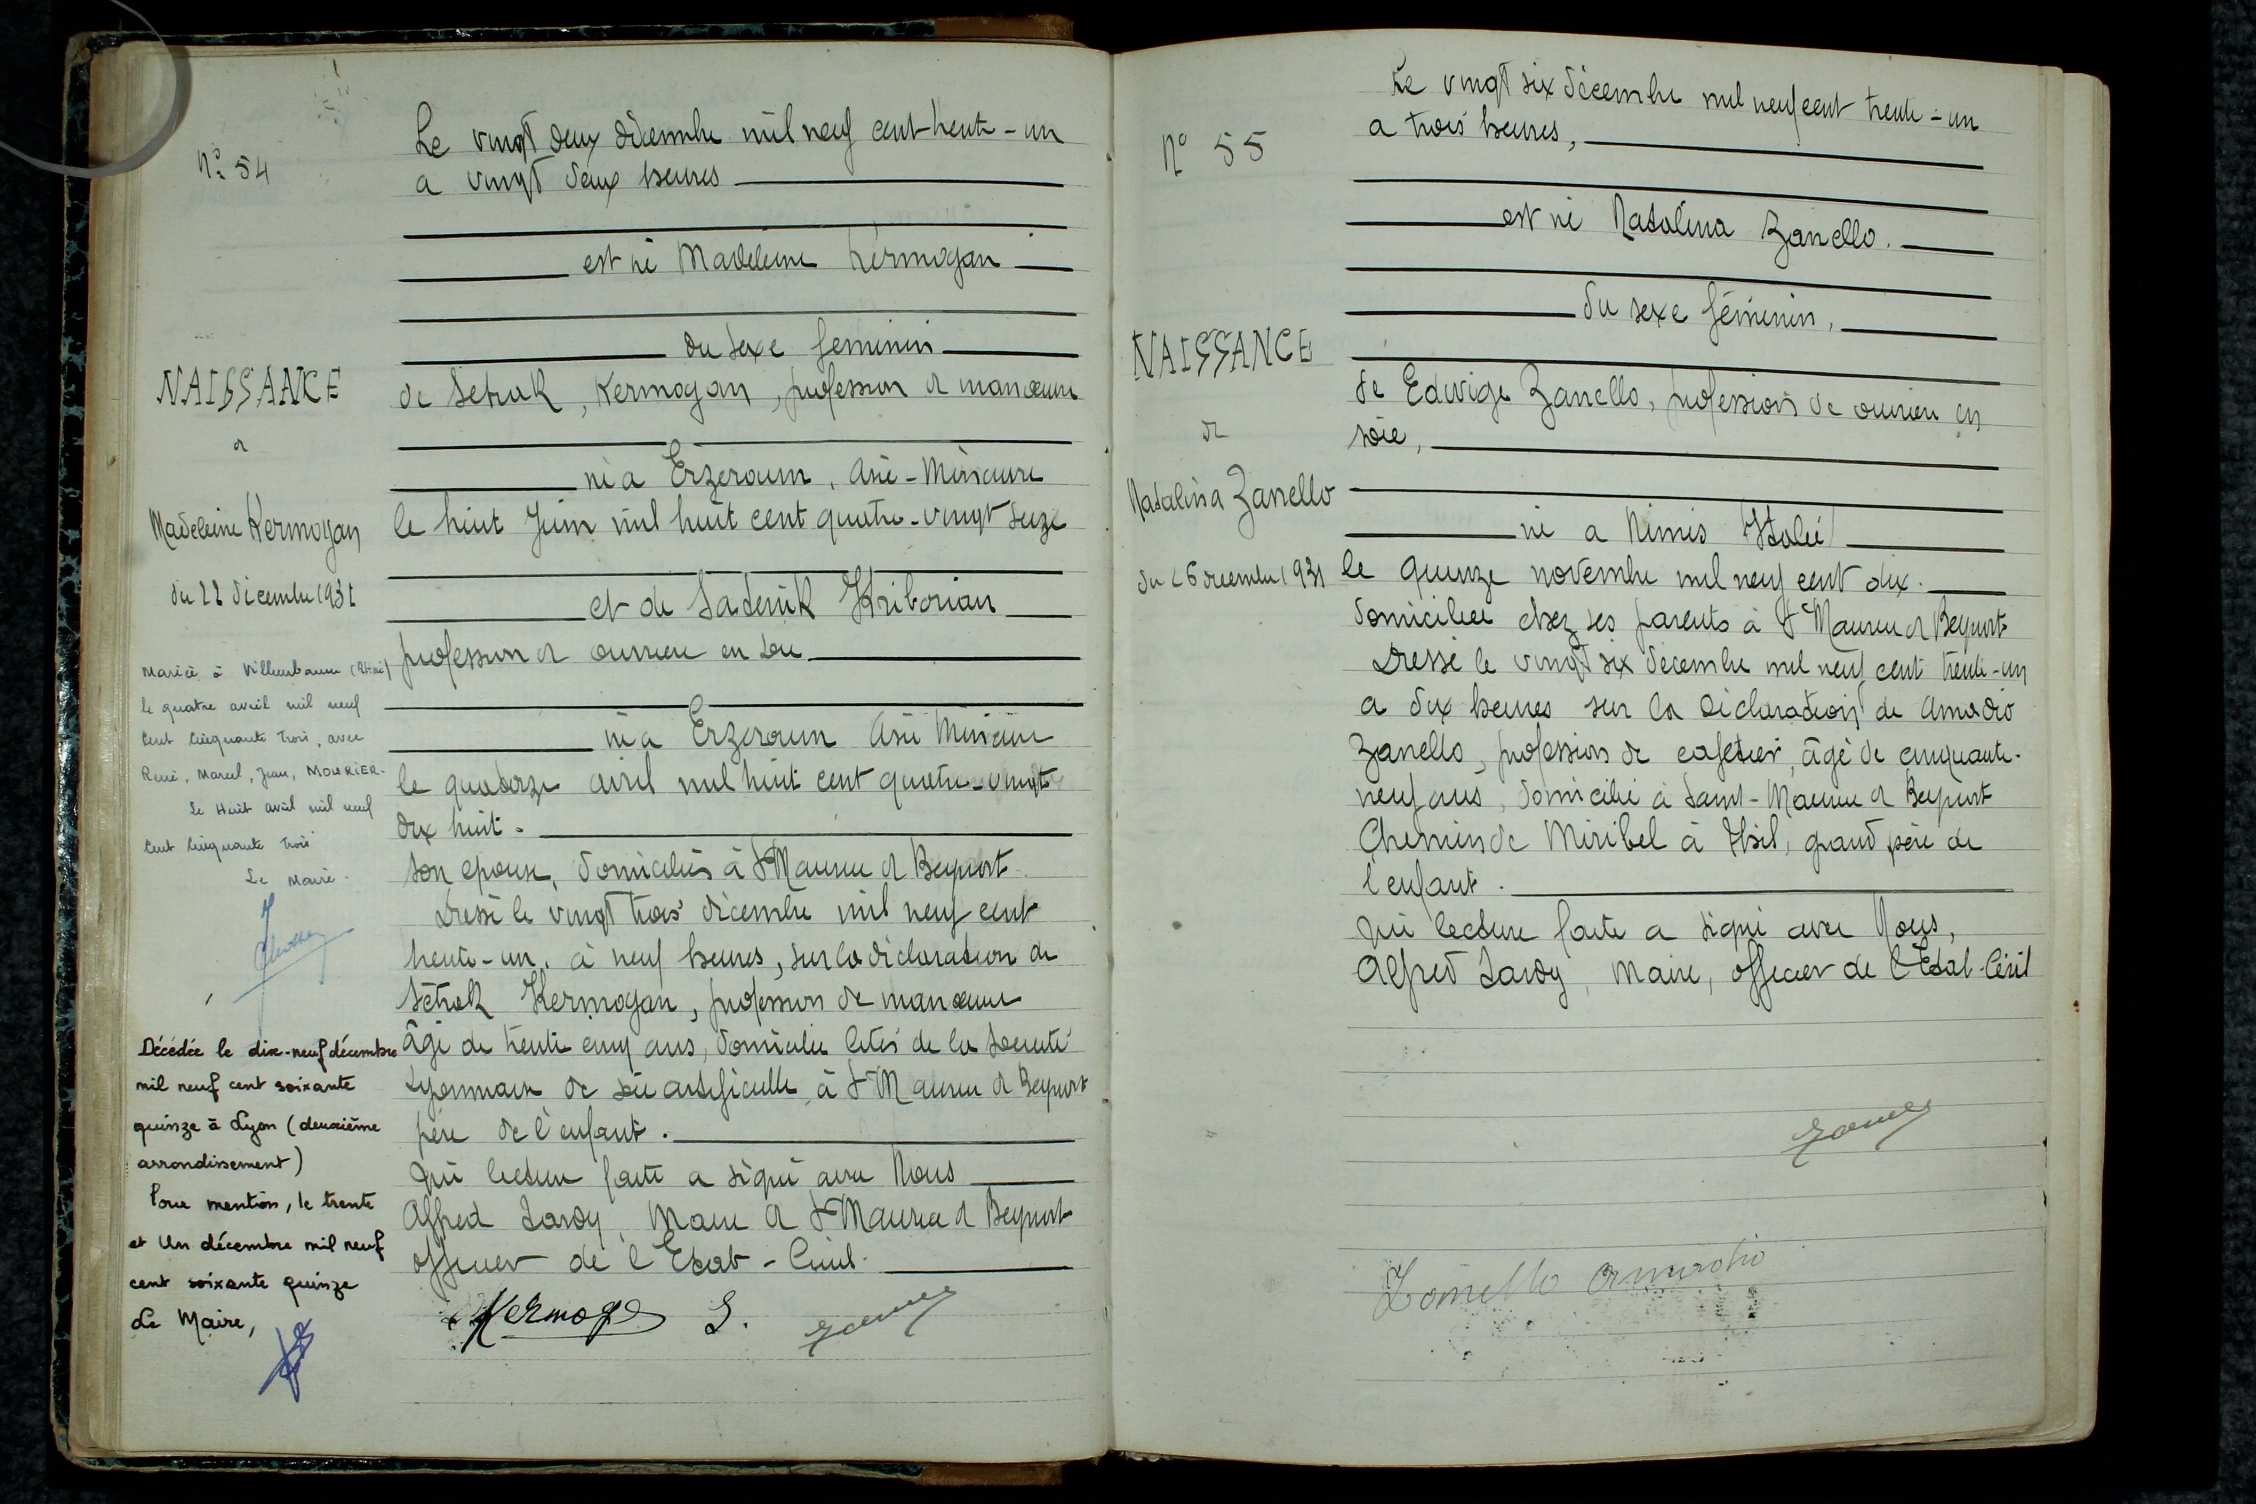 N° 54
NAISSANCE
de
Madeleine Kermoyan
du 22 décembre 1931
Mariée à Villeurbanne (Rhône)
le quatre avril mil neuf
cent cinquante trois, avec
René, Marcel, Jean, MOURIER.
Le Huit avril mil neuf
cent cinquante trois
Le Maire.
Décédée le dix-neuf décembre
mil neuf cent soixante
quinze à Lyon (deuxième
arrondissement)
Pour mention, le trente
et Un décembre mil neuf
cent soixante quinze
Le Maire,
Le vingt deux décembre mil neuf cent trente-un
a vingt deux heures
est né Madeleine Kermoyan
du sexe feminin
de Setrak, Kermoyan, profession de manœuvre
né a Erzeroum, Asie-Mineure
le huit Juin mil huit cent quatre-vingt seize
et de Saternik Kriborian
profession de ouvrière en soie
né a Erzeroum Asie Mineure
le quatorze avril mil huit cent quatre-vingt
dix huit.
son epouse, domiciliés à St Maurice de Beynost
Dressé le vingt trois décembre mil neuf cent
trente-un, à neuf heures, sur la déclaration de
Sétrak Kermoyan, profession de manœuvre
âgé de trente cinq ans, domicilié Cités de la Société
Lyonnaise de soie artificielle, à St Maurice de Beynost
père de l'enfant.
Qui lecture faite a signé avec Nous
Alfred Jardy Maire de St Maurice de Beynost
officier de l'Etat-Civil.
Kermoyan S.
N° 55
NAISSANCE
de
Natalina Zanello
du 26 decembre 1931
Le vingt six décembre mil neuf cent trente-un
a trois heures,
est né Natalina Zanello.
du sexe féminin,
de Edwige Zanello, profession de ouvrière en
soie,
né a Nimis Italie
le quinze novembre mil neuf cent dix.
domiciliée chez ses parents à St Maurice de Beynost
Dressé le vingt six décembre mil neuf cent trente-un
a dix heures sur la déclaration de Amadio
Zanello, profession de cafetier, âgé de cinquante-
neuf ans, domicilié à Saint-Maurice de Beynost
Chemin de Miribel à Thil, grand père de
l'enfant.
Qui lecture faite a signé avec Nous,
Alfred Jardy, Maire, officier de l'Etat-Civil
Zanello Amadio